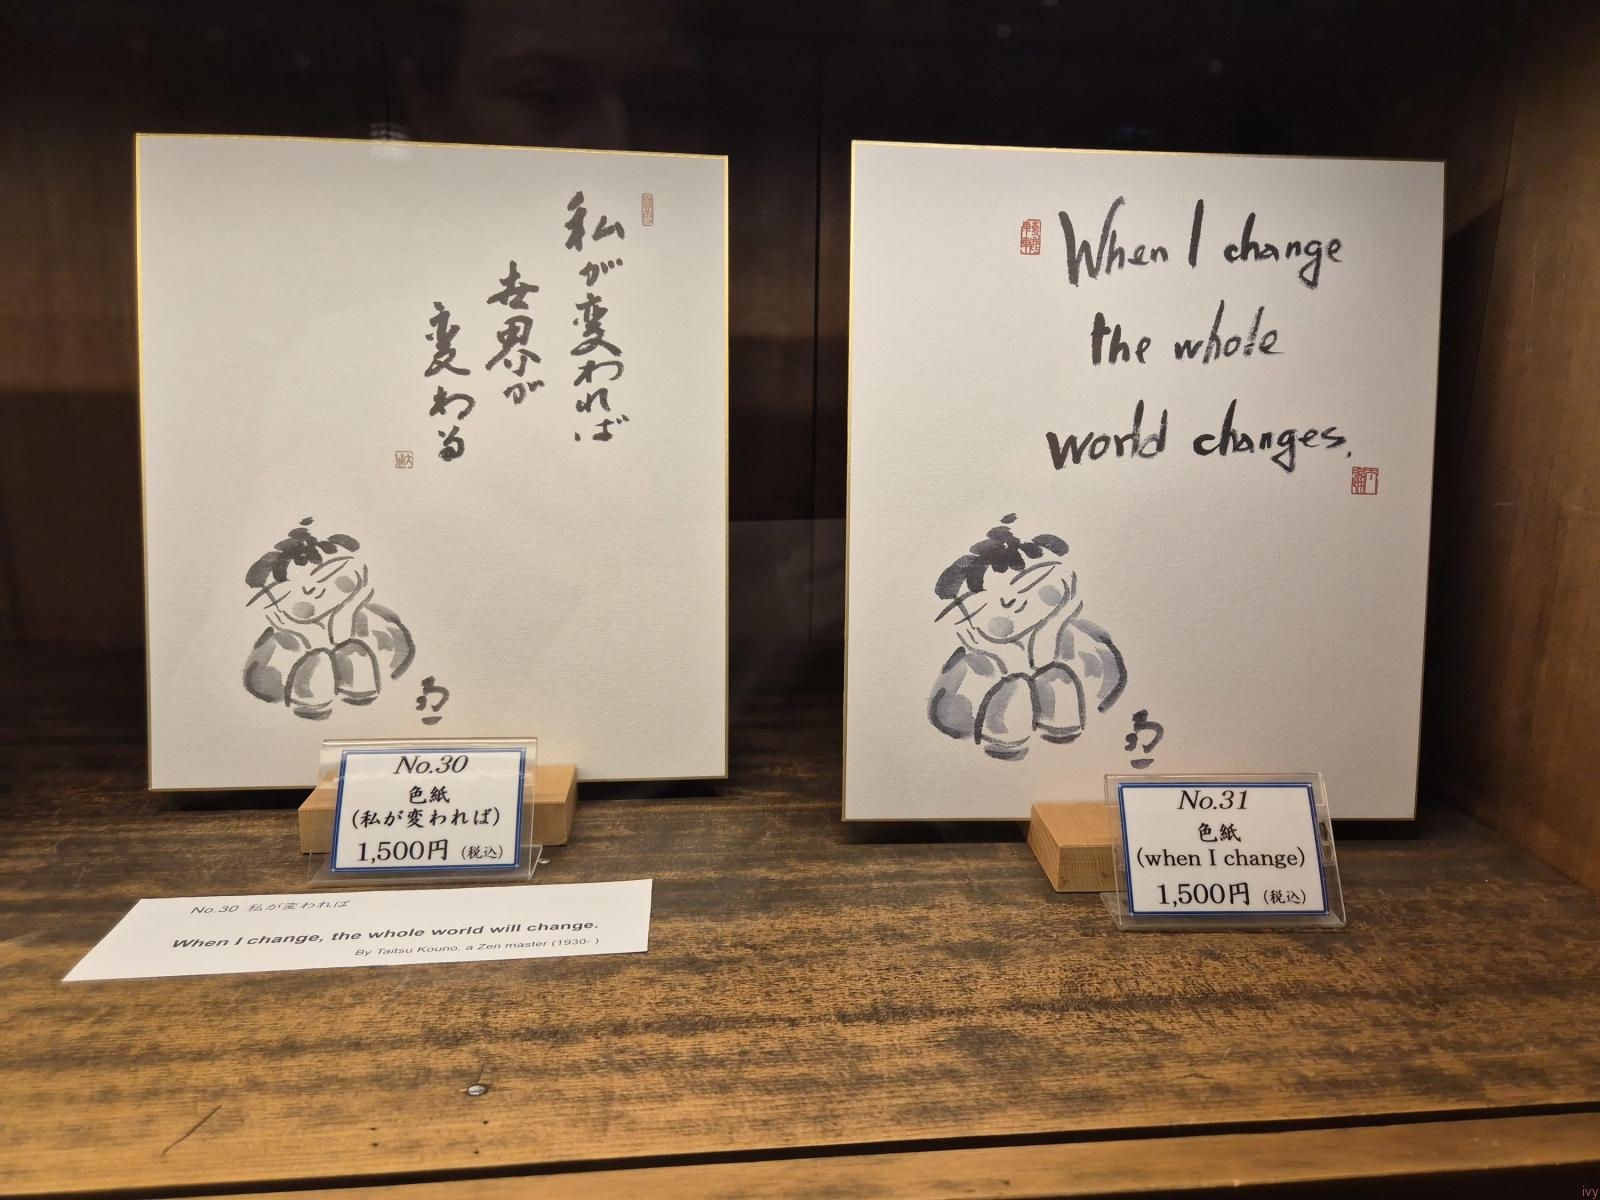 私が変われば
世界が
変わる
No.30
色紙
(私が変われば)
1,500円 (税込)
No.30 私が変われば
When I change, the whole world will change.
By Taitsu Kouno, a Zen master (1930- )
When I change
the whole
world changes.
No.31
色紙
(when I change)
1,500円 (税込)
ivy